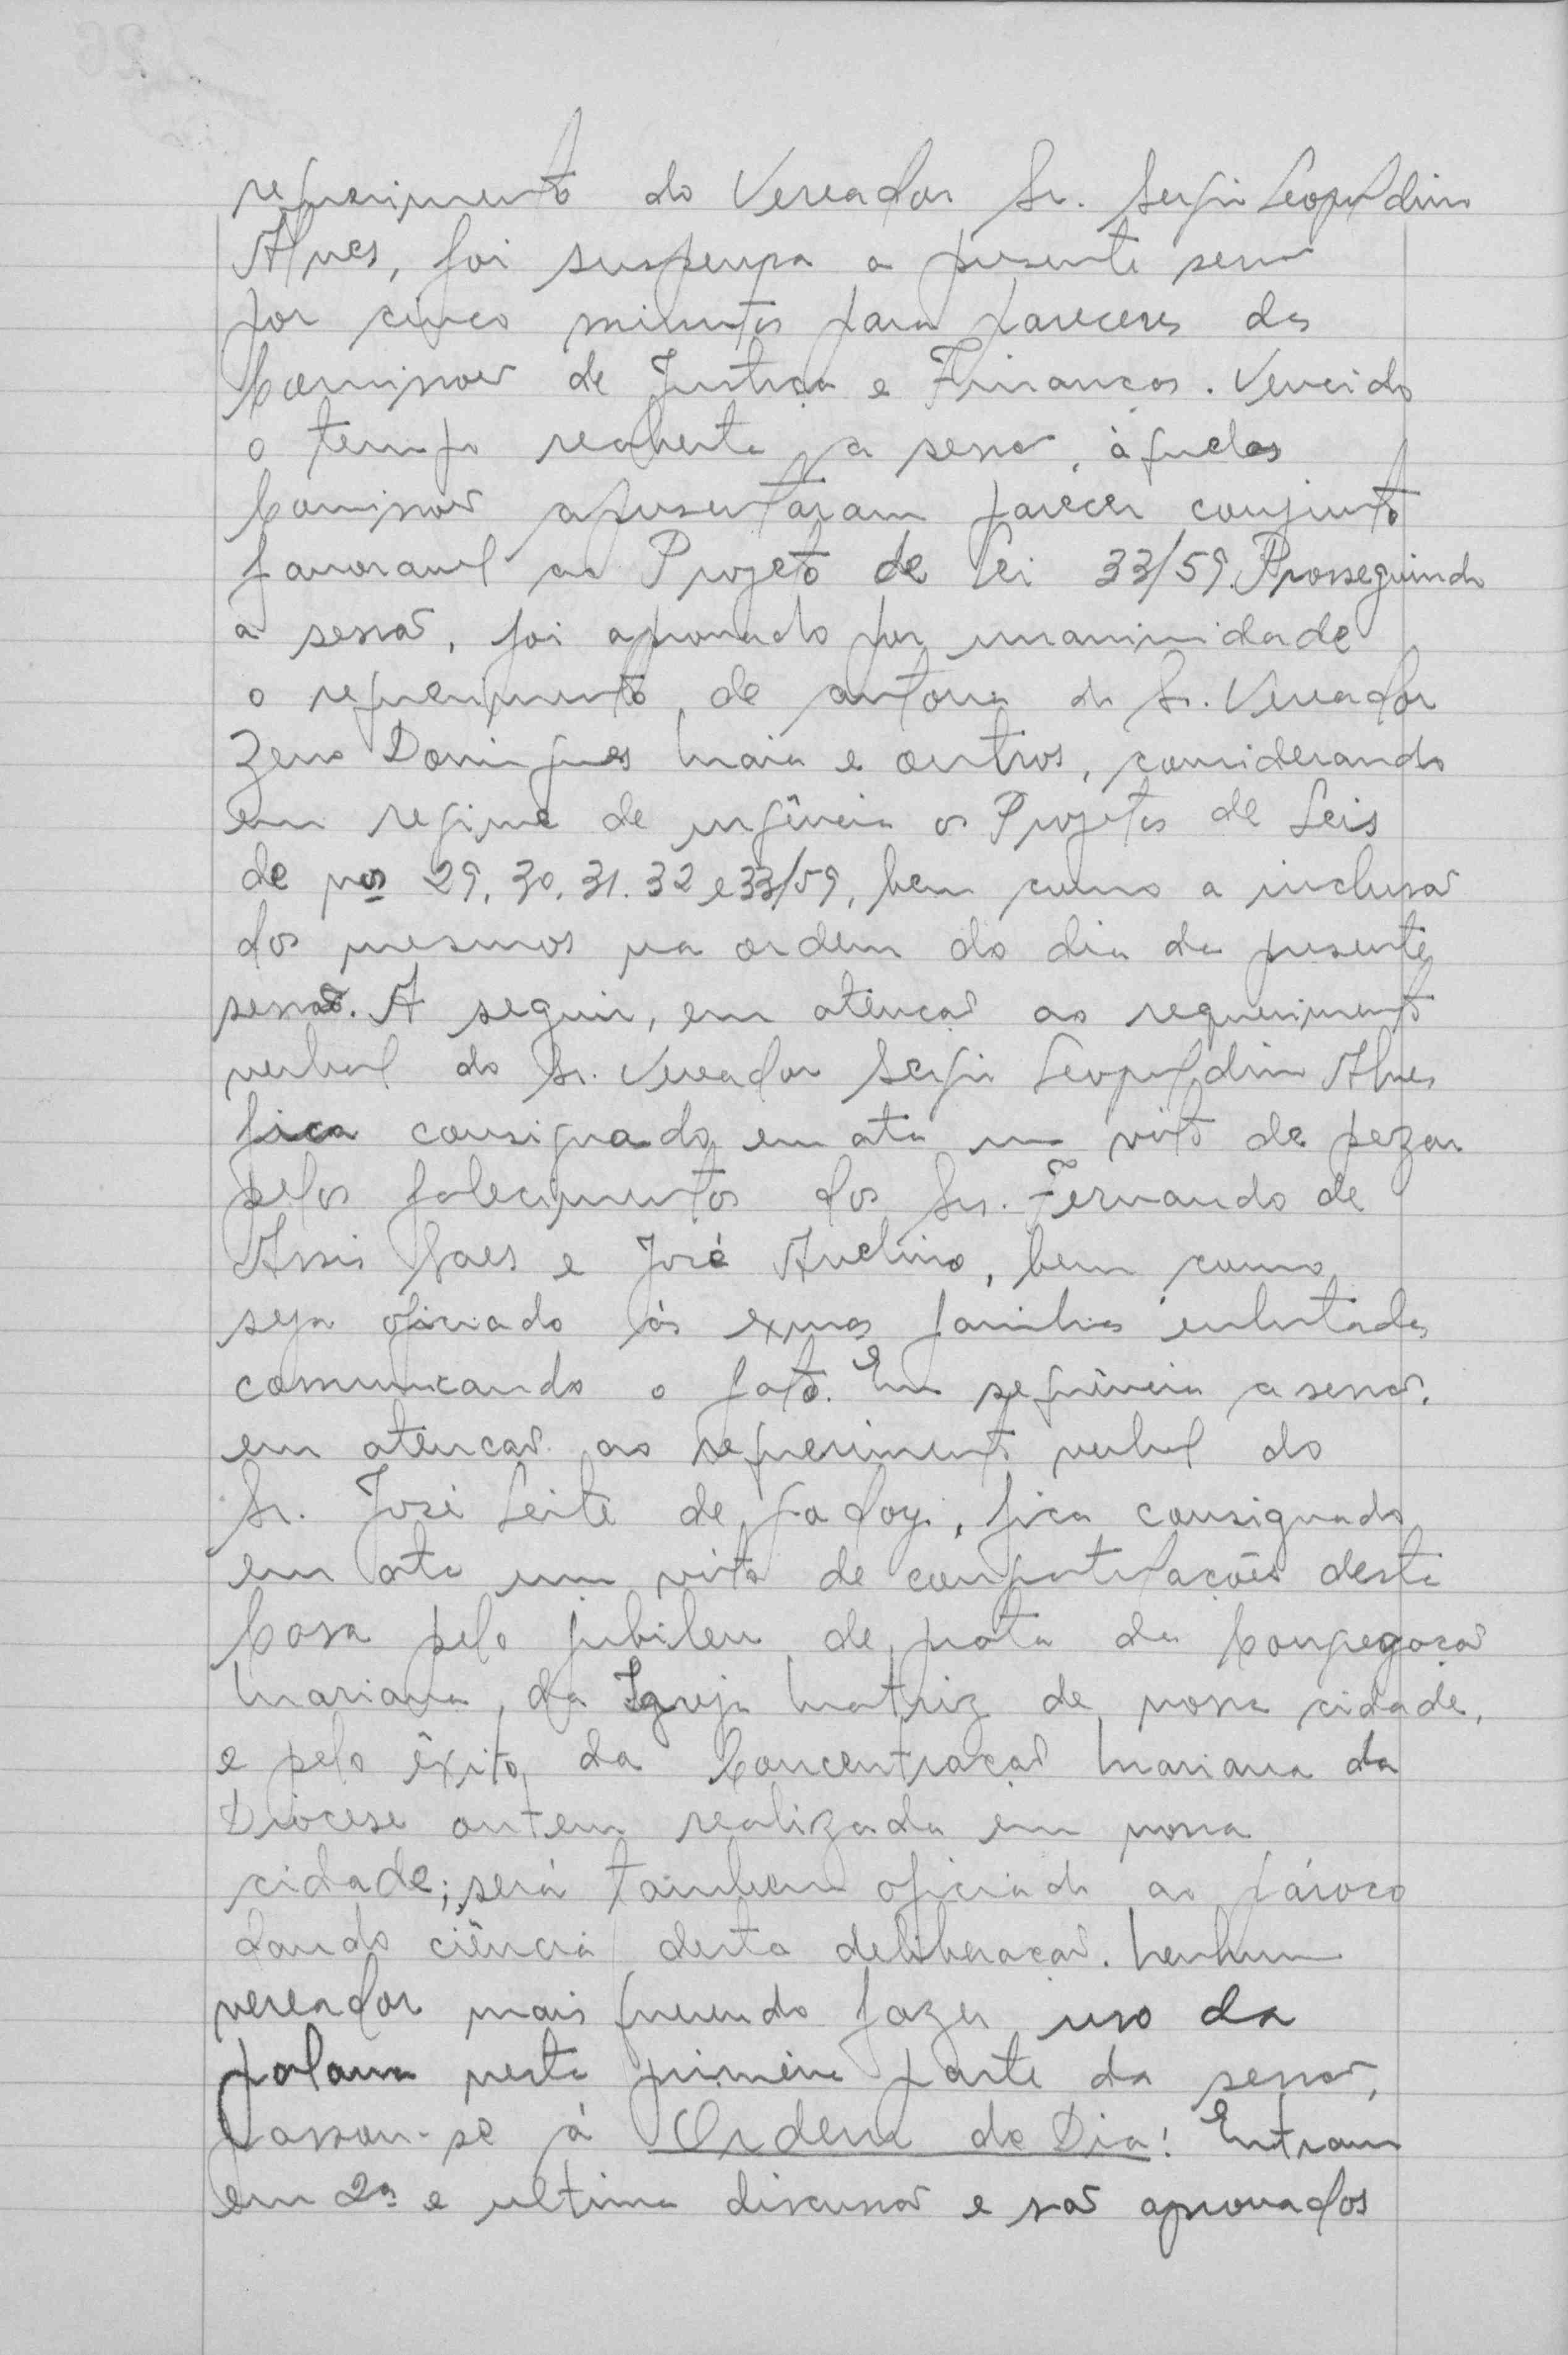 requerimento do Vereador Sr. Sergio Leopoldino
Alves, foi suspensa a presente sessão
por cinco minutos para pareceres das
Comissões de Justiça e Finanças. Vencido
o tempo reaberta a sessão, àquelas
Comissões apresentaram parecer conjunto
favoravel ao Projeto de Lei 33/59. Prosseguindo
a sessão, foi aprovado por unanimidade
o requerimento de autoria do Sr. Vereador
Zeno Domingues Maia e outros, considerando
em regime de urgência os Projetos de Leis
de nos 29, 30, 31, 32 e 33/59, bem como a inclusão
dos mesmos na ordem do dia da presente
sessão. A seguir, em atenção ao requerimento
verbal do Sr. Vereador Sergio Leopoldino Alves
fica consignado em ata um voto de pezar
pelos falecimentos dos Srs. Fernando de
Assis e José Avelino, bem como
seja oficiado às exmas familias enlutadas
comunicando o fato. Em sequência a sessão,
em atenção ao requerimento verbal do
Sr. José Leite de Godoy, fica consignado
em ata um voto de congratulações desta
Casa pelo jubileu de prata da Congregação
Mariana, da Igreja Matriz de nossa cidade,
e pelo êxito da Concentração Mariana da
Diocese ontem realizada em nossa
cidade; será tambem oficiado ao pároco
dando ciência desta deliberação. Nenhum
vereador mais querendo fazer uso da
palavra nesta primeira parte da sessão,
passou-se à Ordem do Dia: Entram
em 2ª e ultima discussão e são aprovados